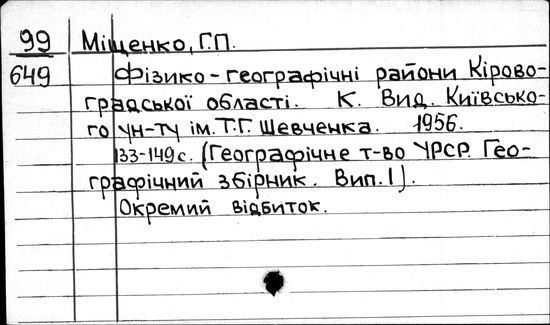 99 Міщенко, Г.П.
649 Фізико-географічні райони Кірово-
градської області. К. Вид. Київсько-
го ун-ту ім. Т.Г. Шевченка. 1956.
133-149 с. (Географічне т-во УРСР. Гео-
графічний збірник. Вип. I).
Окремий відбиток.